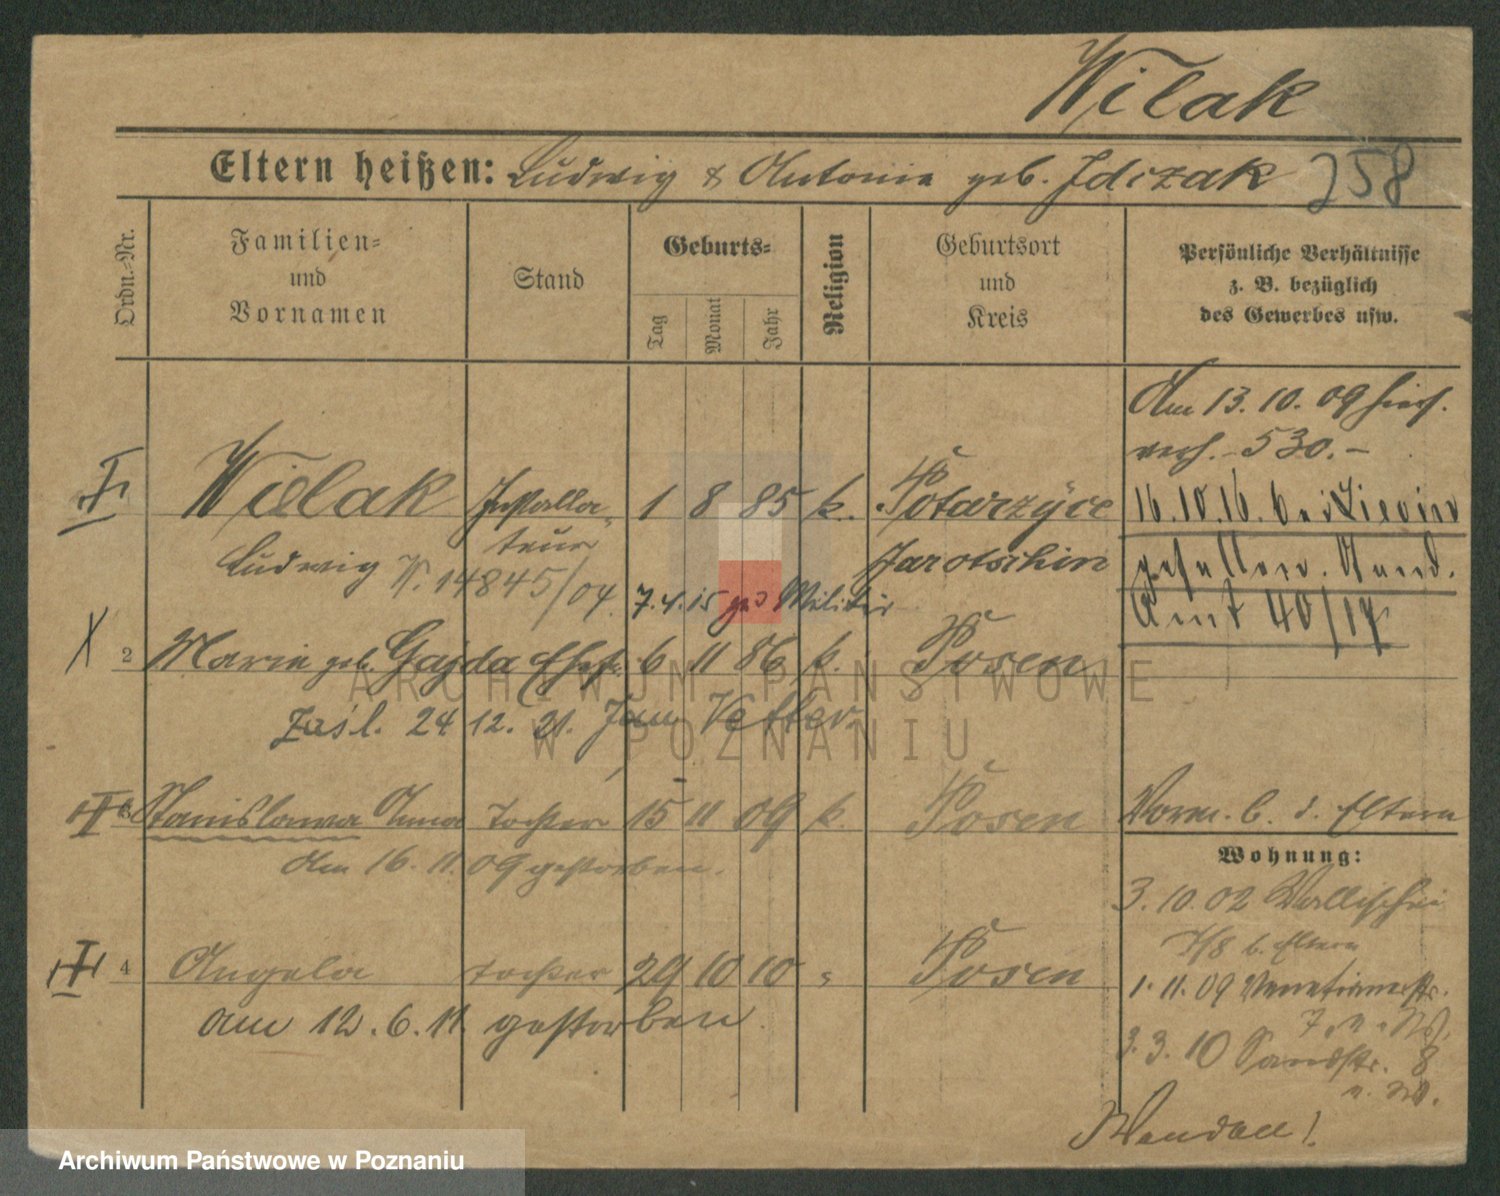 Wilak
Eltern heißen: Ludwig & Antonie geb. Idczak 258
Ordn.-Nr.
Familien-
und
Vornamen
Stand
Geburts-
Tag
Monat
Jahr
Religion
Geburtsort
und
Kreis
Persönliche Verhältnisse
z. B. bezüglich
des Gewerbes usw.
Am 13. 10. 09
530.-
Wielak Installa- 1 8 85 k. Potarzyce
teur Jarotschin
Ludwig V. 14845/04
16.10.16. bei Lievin
gefallen. Stand.
Amt 40/17
7.4.15 Militär
2 Maria geb. Gajda Ehefr. 6 11 86 k. Posen
zaśl. 24 12. 21. Jan Vetter
3 Stanislawa Anna Tochter 15 11 09 k. Posen
am 16. 11. 09 gestorben.
Vorm. b. d. Eltern
Wohnung:
3. 10. 02 Wallischei
b. Eltern
4 Angela Tochter 29 10 10 " Posen
am 12. 6. 11. gestorben.
1. 11. 09 Venetianerstr.
3. 10 Sandstr. 8
ARCHIWUM PAŃSTWOWE
W POZNANIU
Archiwum Państwowe w Poznaniu